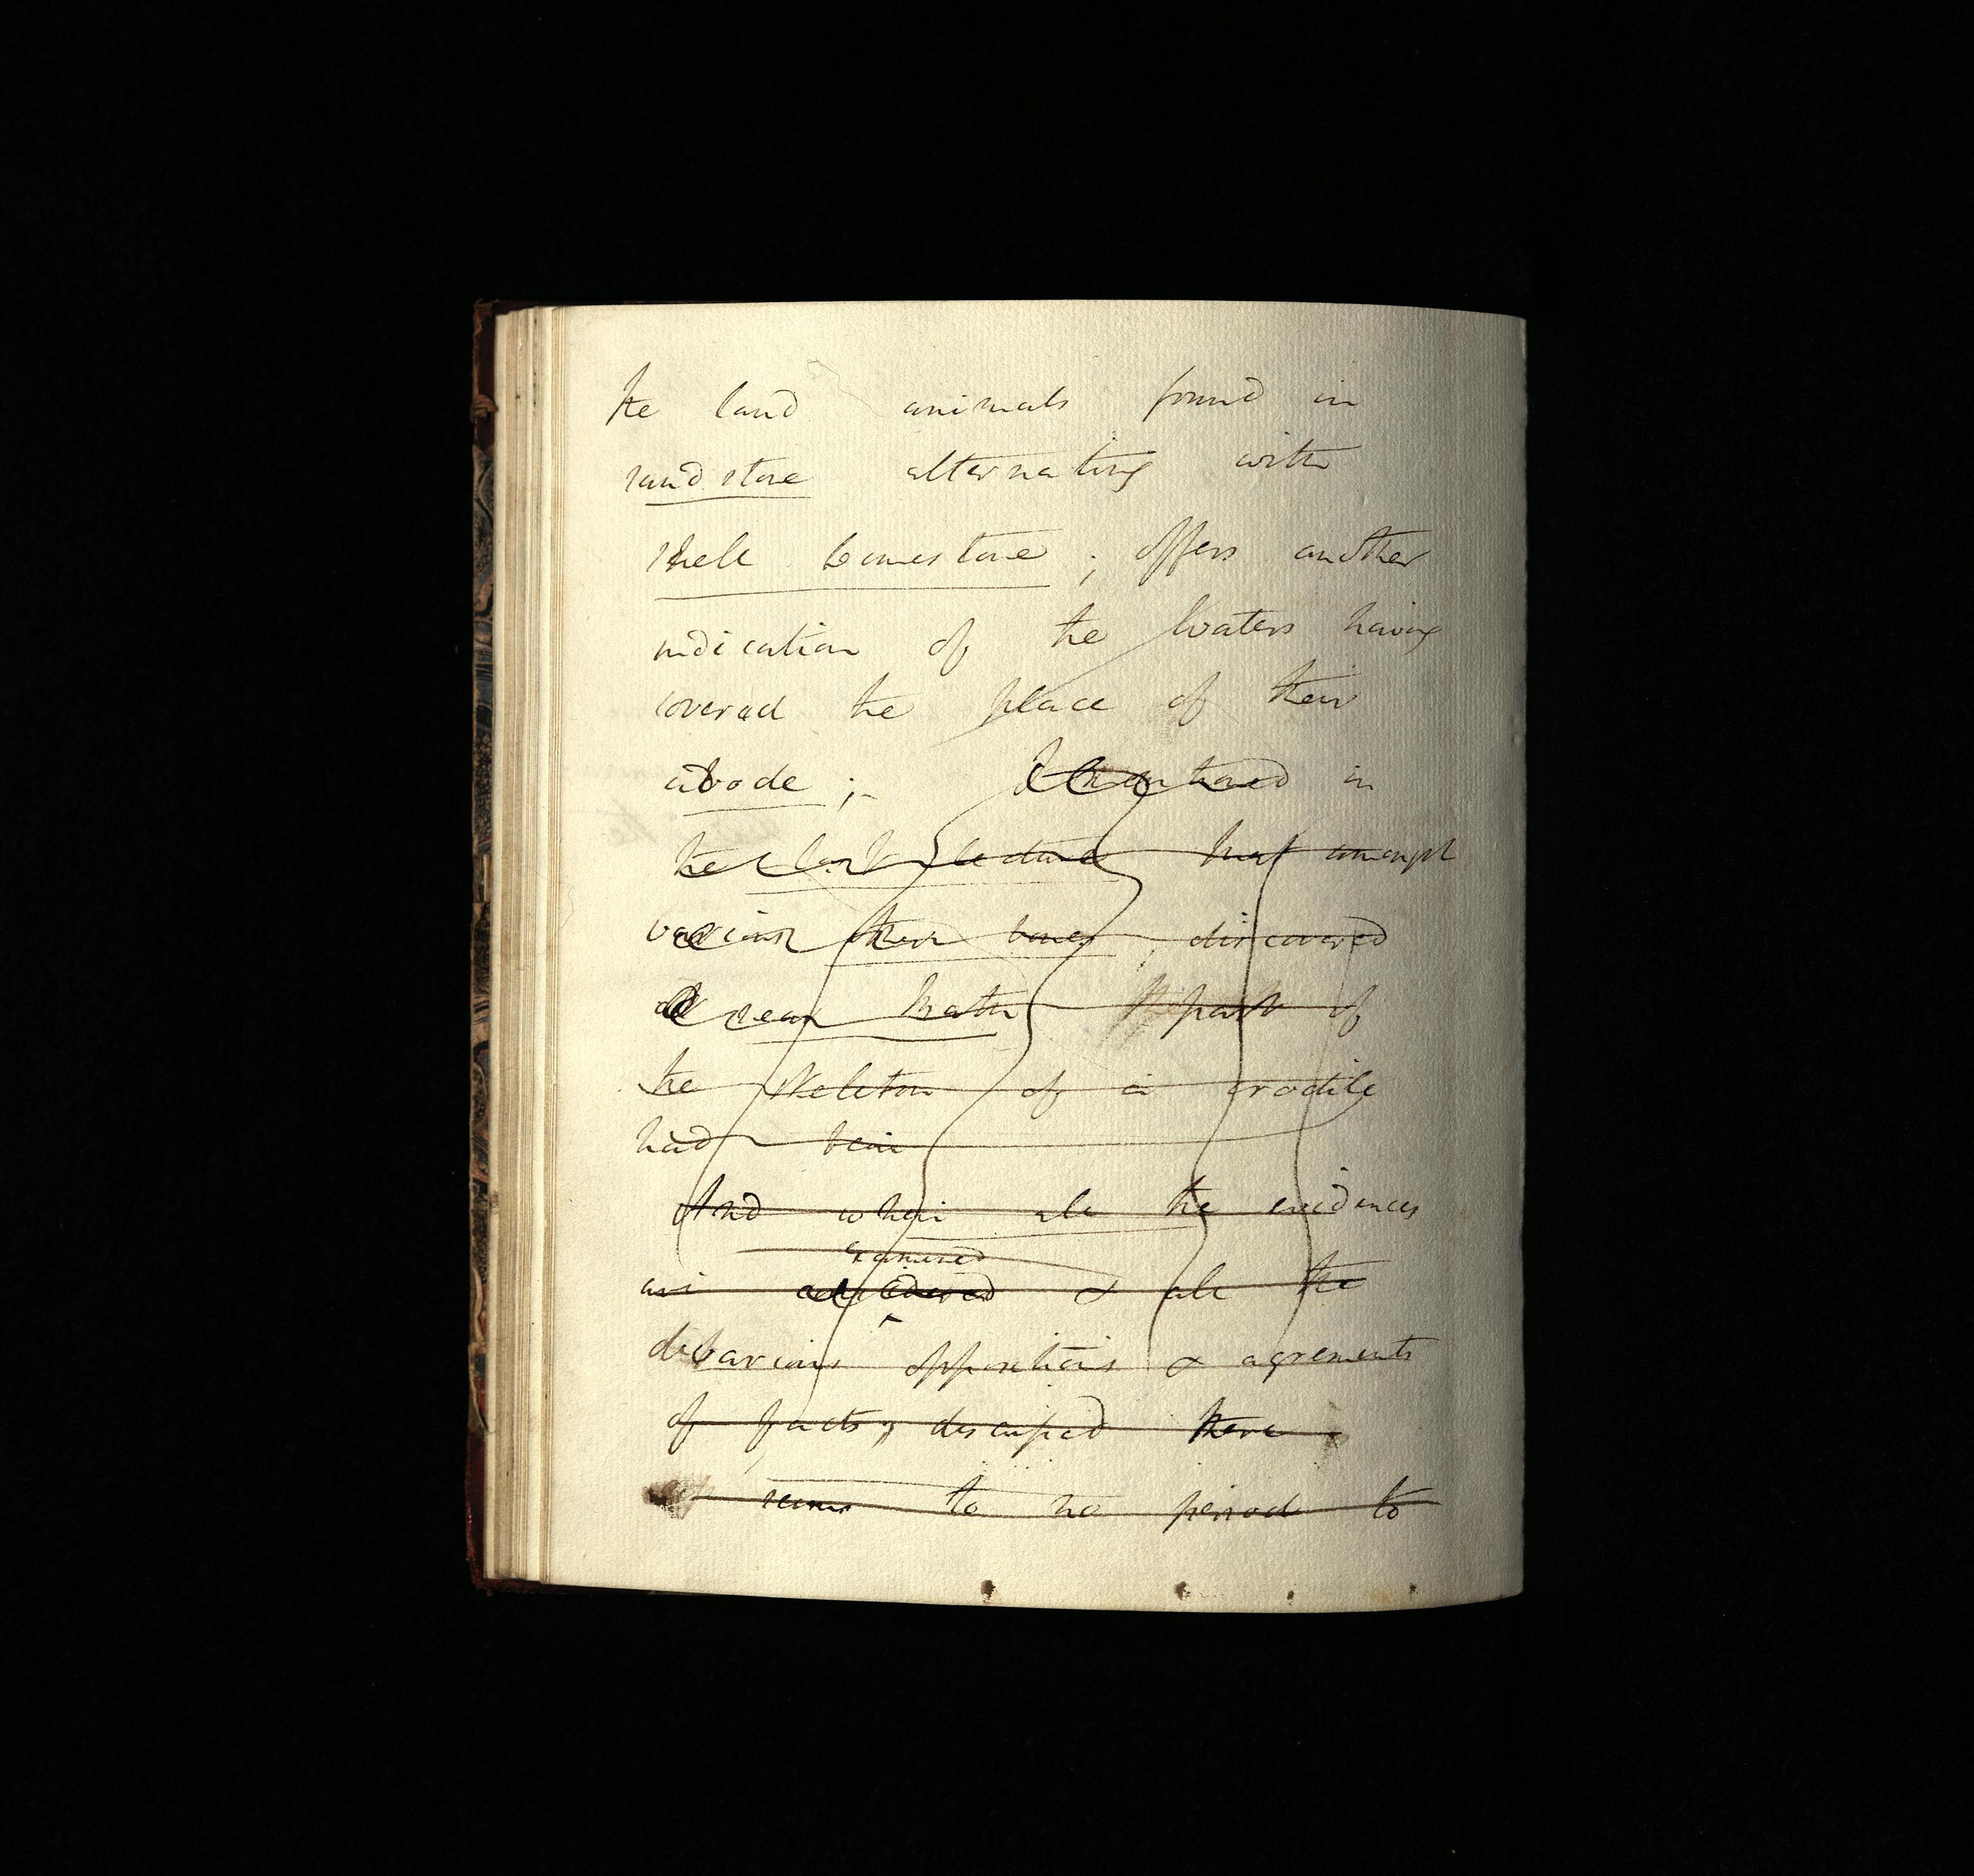 the land animals found in
sandstone alternating with
shell limestone; offers another
indication of the Waters having
covered the place of their
abode;- I mentioned in
the last lecture that amongst
various other bones, discovered
near Bath part of
the skeleton of a crocodile
had been
And when all the evidences
examined
are considered & all the
various oppositions & agrements
of facts, discussed there
seems to no period to